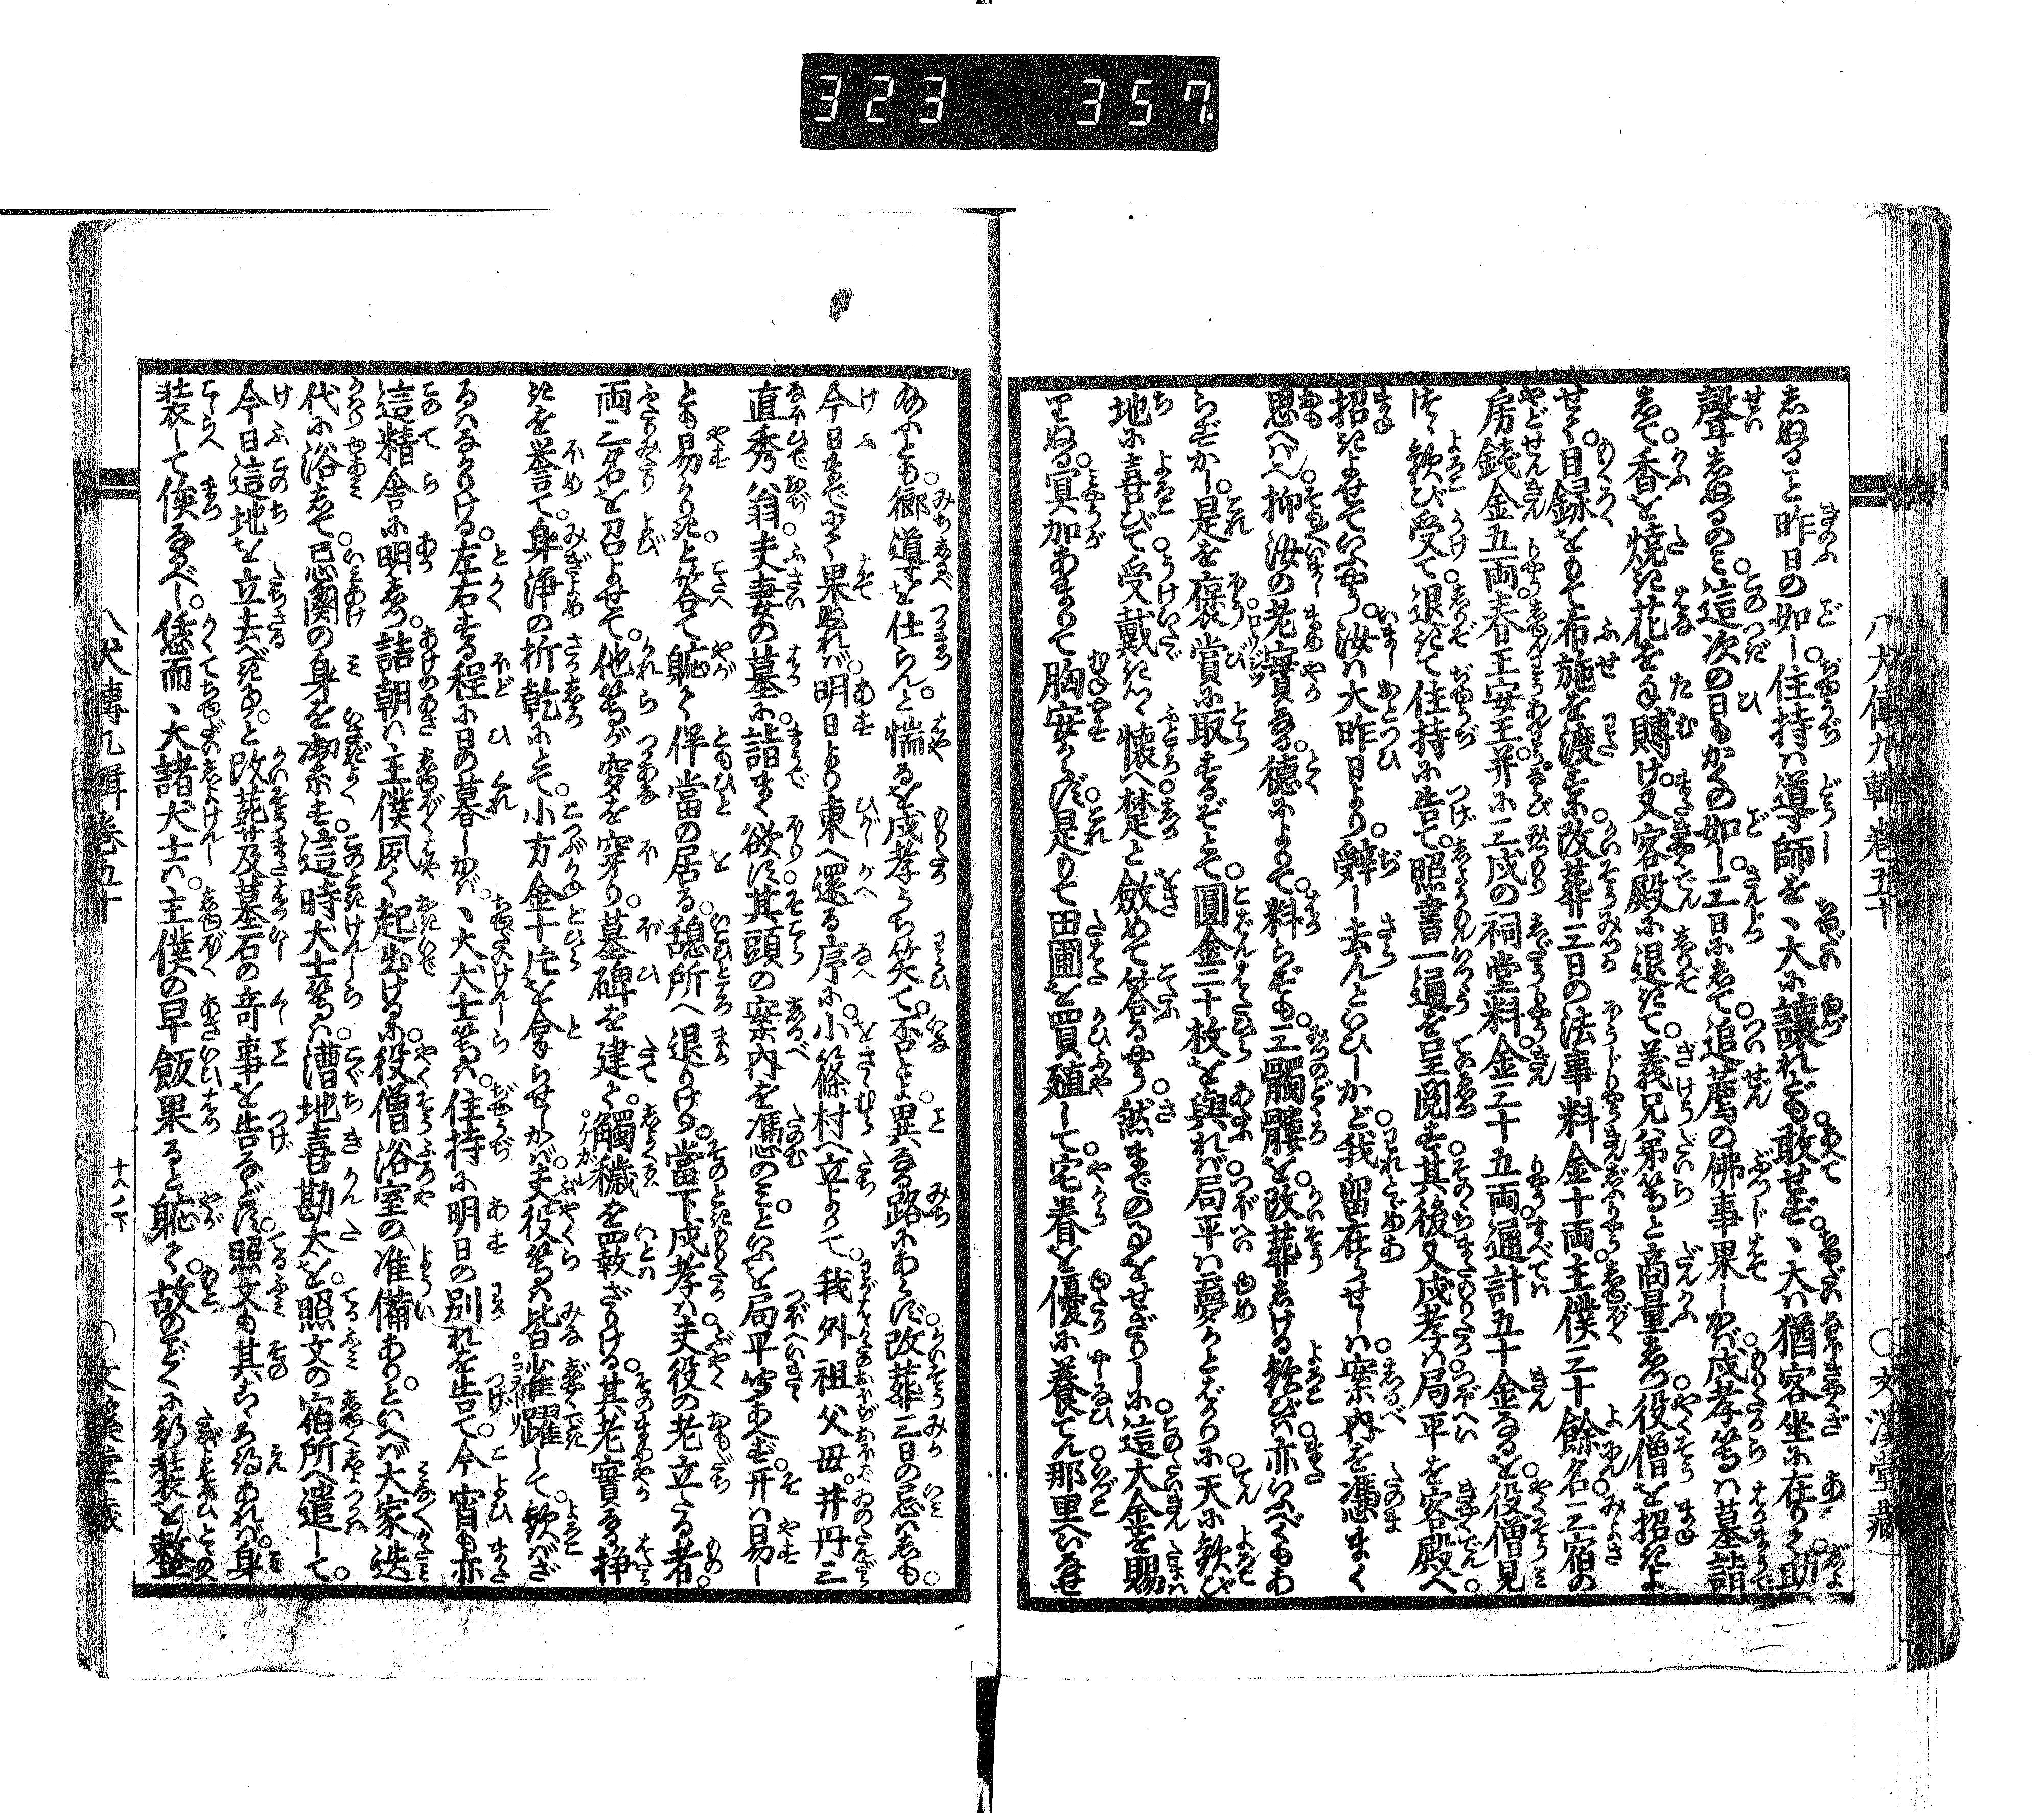 323 357
八犬傳九輯卷五十
○文溪堂藏
あぬること昨日の如し。住持は導師を、大に讓れども敢せず。、大は猶客坐に在りく助
聲あぬるのミ。這次の日もかくの如し。三日にあて追薦の佛事果しかば、戍孝等は墓詣
あて。香を焼き花を手賻け。又客殿に退きて。義兄弟等と商量あつ。役僧を招きよ
せて。目録をもて布施を渡すに。改葬三日の法事料金十両。主僕三十餘名三宿の
房錢金五両。春王安王。并に三戍の祠堂料。金三十五両。通計五十金なるを役僧見
つゝ歡び受て退きて住持に告て。照書一通を呈閲す。其後又戍孝は。局平を客殿へ
招きよせていふやう。汝は大昨日より。辭し去んといひしかど。我留在らせしは。案内を憑まく
思へば也。抑汝の老實なる。德によりて。料らずも。三髑髏を改葬あける歡びは。亦いふべくもあ
らずかし。是を褒賞に取するぞとて。圓金三十枚を與れば。局平は。夢かとばかりに天に歡び
地に喜びて受戴きつ。懷へ楚と斂めて答るやう。然までの事をせざりしに。這大金を賜
りぬる。冥加あまりて胸安からず。是もて田圃を買殖して。宅眷を優に養てん。那里へいませ
給ふとも。郷道を仕らんと。惴るを戍孝うち笑て。否とよ異なる路にあらず。改葬三日の忌はあも。
今日までにて果ぬれば。明日より東へ還る序に。小篠村へ立よりて。我外祖父母。井丹三
直秀翁夫妻の墓に詣まく欲す。其頭の案内を憑むのミといふを局平うちあへず。开は易し
とも易かりきと答て。軈て伴當の居る。憩所へ退りけり。當下戍孝は。夫役の老立たる者。
両三名を召よせて。他等が穸を穿り。墓碑を建て。觸穢を四敦ざりける。其老實なる挣
きを誉て。身淨の折乾にとて。小方金十片を拿らせしかば。夫役等は皆雀躍して。歡ばざ
るはなかりける。左右する程に日の暮しかば、大犬士等は。住持に明日の別れを告て。今宵も亦
這精舎に明あつ。詰朝は主僕夙く起出けるに。役僧浴室の准備あり。といへば大家迭
代に浴あて。忌闋の身を潔ふす。這時犬士等は。漕地喜勘太を。照文の宿所へ遣して。
今日這地を立去べき事。と改葬及墓石の奇事を告るに。照文も其こゝろ得あれば。身
装して俟なるべし。恁而、大諸犬士は。主僕の早飯果ると軈て。故のごとくに行装を整
八犬傳九輯 卷五十
十八ノ下
○文溪堂藏